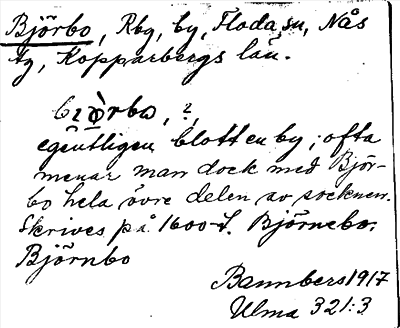 Björbo, Rbg, by, Floda sn, Nås
tg, Kopparbergs län.
egentligen blott en by; ofta
menar man dock med Björ-
bo hela övre delen av socknen.
Skrives på 1600-t. Björnebo,
Björnbo
Bannbers 1917
Ulma 321:3